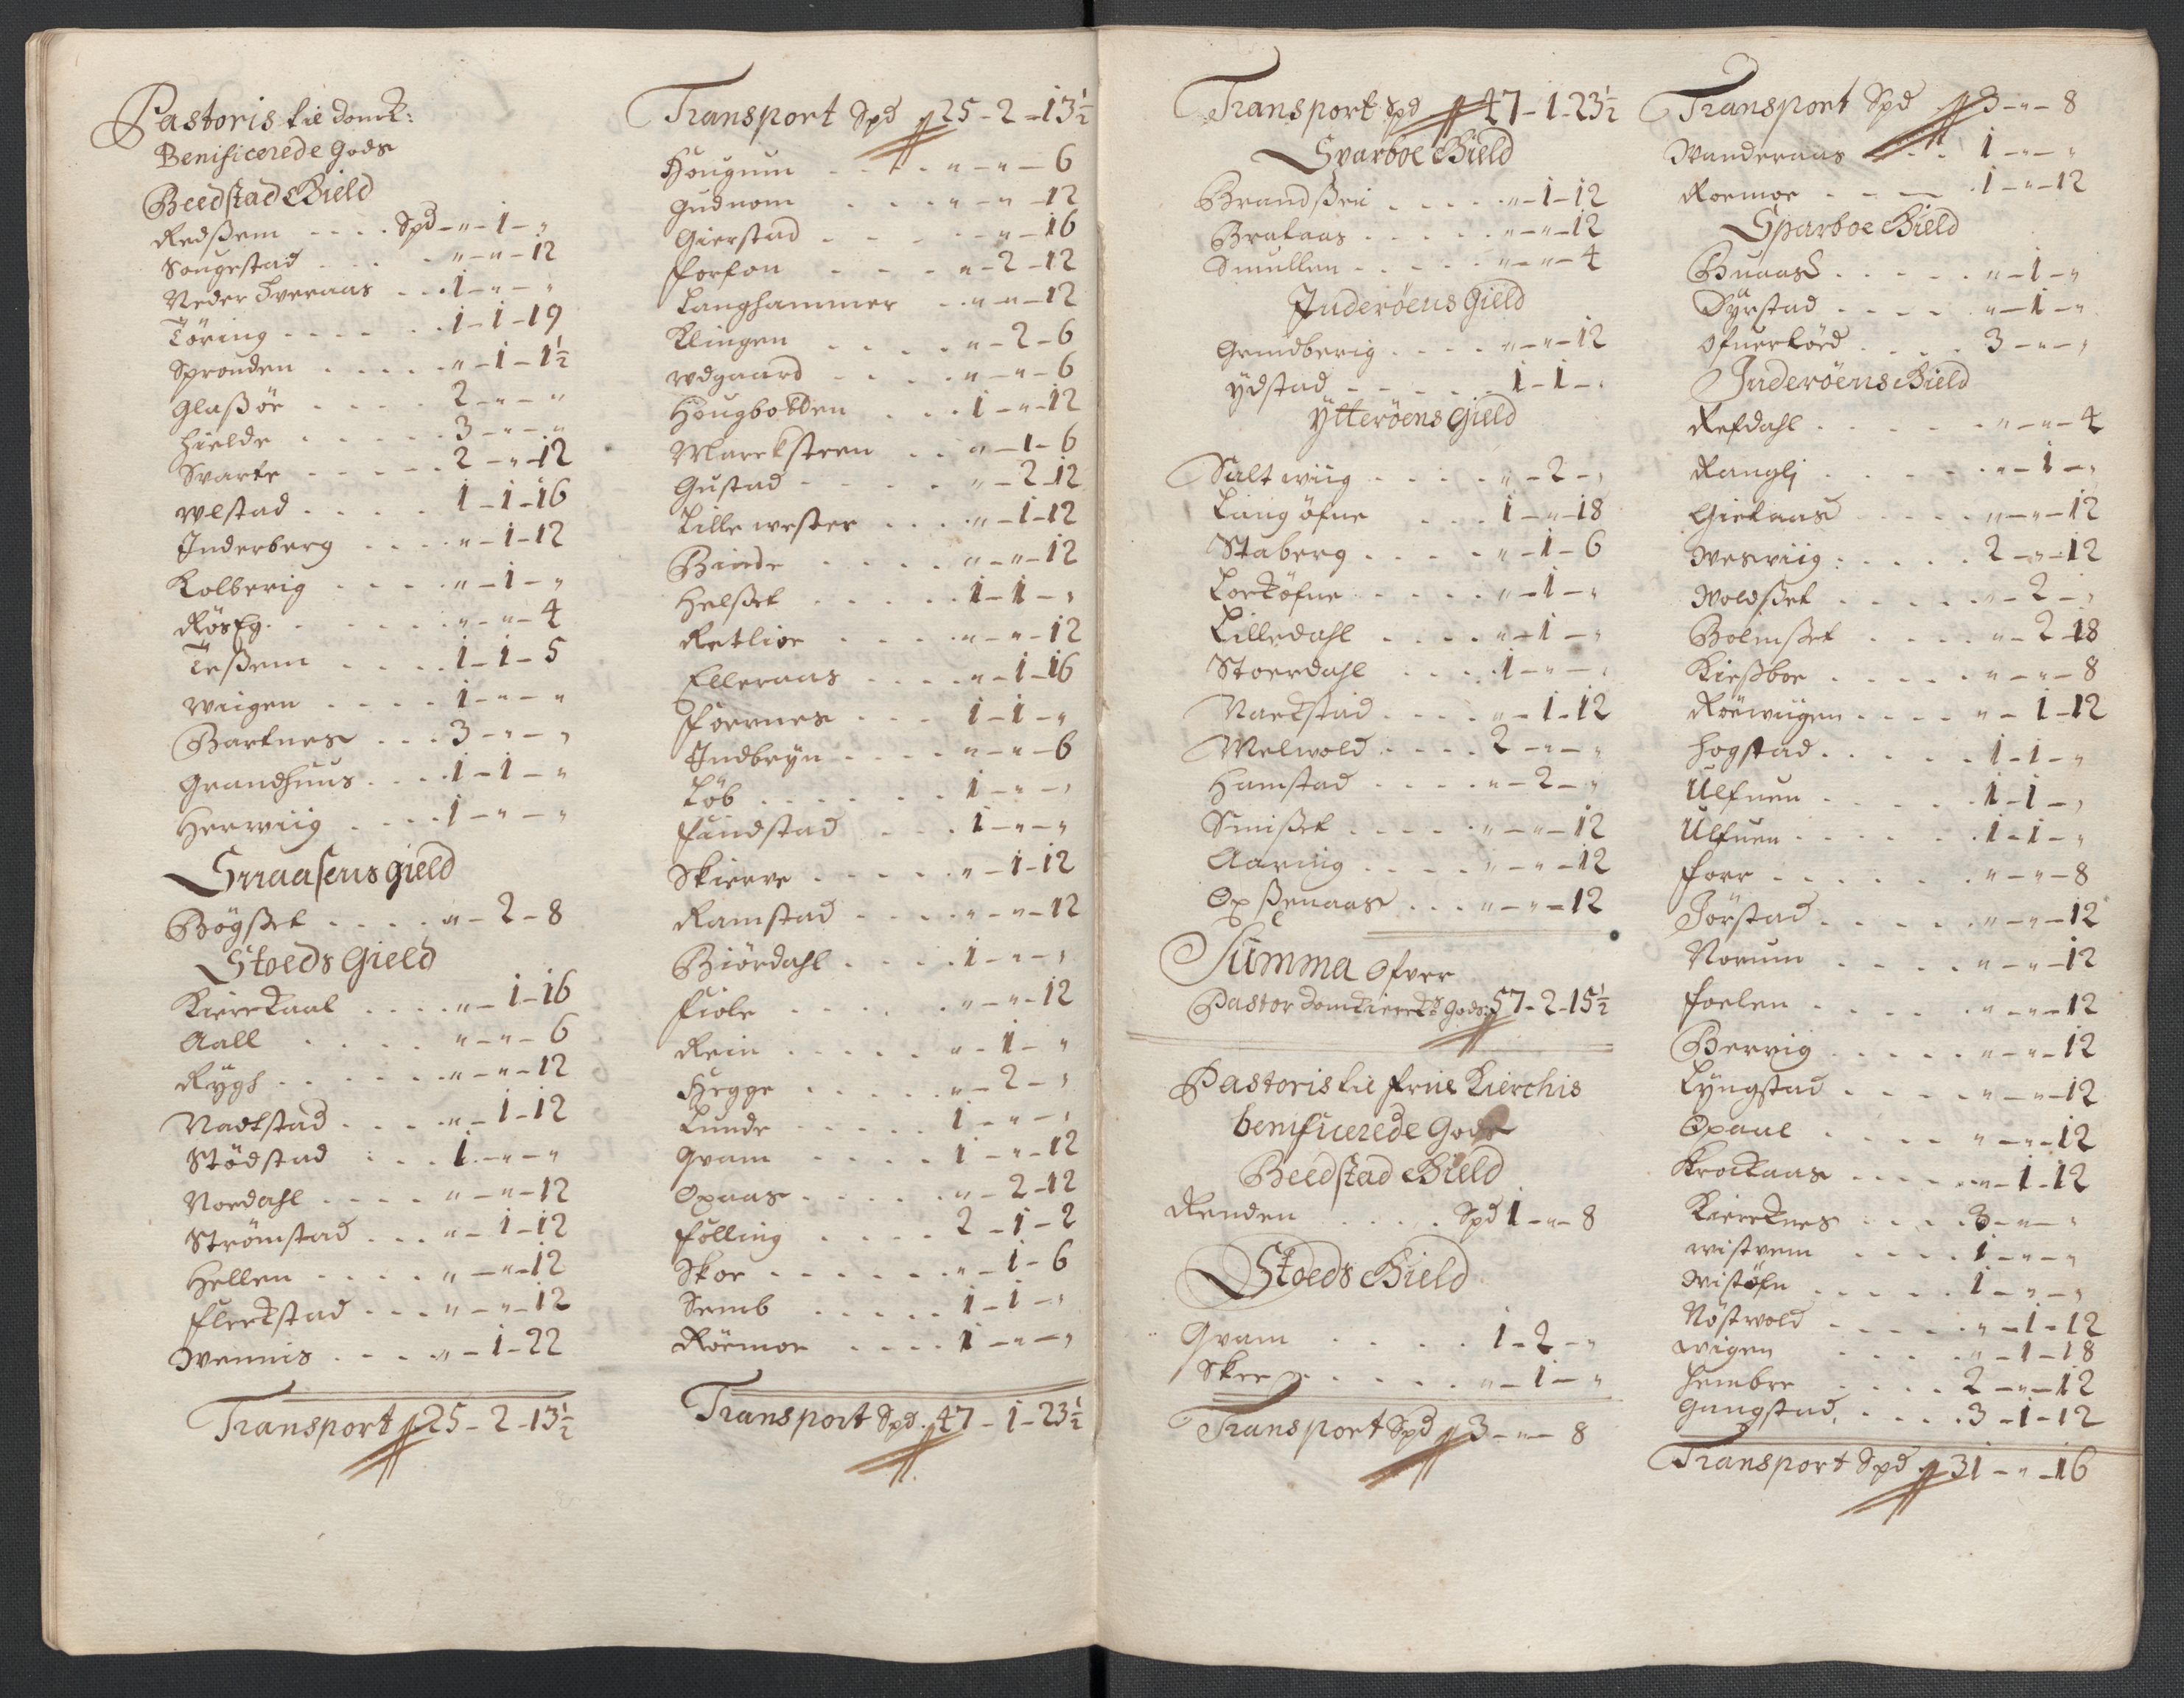 Pastoris til domk:
Benificerede Gods
Beedstad Gield
Redssem . . . . Spd - " - 1 - "
Sougestad . . . " - " - 12
Neder Overaas . . . 1 - " - "
Töring . . . . 1 - 1 - 19
Spronden . . . . " - 1 - 1½
Glassöe . . . . 2 - " - "
Hielde . . . . 3 - " - "
Svarte . . . . 2 - " - 12
Wlstad . . . . 1 - 1 - 16
Inderberg . . . . " - 1 - 12
Kolberig . . . . " - 1 - "
Röseg . . . . " - " - 4
Tessem . . . . 1 - 1 - 5
Wiigen . . . . 1 - " - "
Bartnes . . . 3 - " - "
Grandhuus . . . . 1 - 1 - "
Herwiig . . . . 1 - " - "
Snaasens gield
Bögsset . . . . " - 2 - 8
Stoeds Gield
Kierckaal . . . . " - 1 - 16
Aall . . . . " - " - 6
Rygh . . . . " - " - 12
Nadtstad . . . . " - 1 - 12
Stödstad . . . 1 - " - "
Nordahl . . . . " - " - 12
Strömstad . . . " - 1 - 12
Hellem . . . . " - " - 12
Fleckstad . . . " - " - 12
Wennis . . . . " - 1 - 22
Transport 25 - 2 - 13½
Transport Spd 25 - 2 - 13½
Hougum . . . . " - " - 6
Gudnom . . . . " - " - 12
Gierstad . . . . " - 16
Forfon . . . . " - 2 - 12
Langhammer . . " - " - 12
Klingen . . . . " - 2 - 6
Wdgaard . . . . " - " - 6
Hougbotten . . . 1 - " - 12
Marcksteen . . " - 1 - 6
Gustad . . . . " - 2 - 12
Lille wester . . . . " - 1 - 12
Binde . . . . " - " - 12
Helsset . . . . 1 - 1 - "
Retlioe . . . . " - " - 12
Elleraas . . . . " - 1 - 16
Foernes . . . 1 - 1 - "
Indbryn . . . . " - " - 6
Löb . . . . 1 - " - "
Fundstad . . . 1 - " - "
Skierve . . . . " - 1 - 12
Ramstad . . . . " - " - 12
Biördahl . . . . 1 - " - "
Fiole . . . . " - " - 12
Rein . . . . " - 1 - "
Hegge . . . . " - 2 - "
Lunde . . . . 1 - " - "
Qvam . . . . 1 - " - 12
Opaas . . . . " - 2 - 12
Följling . . . . 2 - 1 - 2
Skoe . . . . " - 1 - 6
Semb . . . . 1 - 1 - "
Röemoe . . . . 1 - " - "
Transport Spd. 47 - 1 - 23½
Transport Spd 47 - 1 - 23½
Sparboe Gield
Brandssen . . . . " - 1 - 12
Brataas . . . . " - " - 12
Smullen . . . . " - " - 4
Inderöens Gield
Grindberig . . . . " - " - 12
Ydstad . . . . 1 - 1 - "
Ytteröens Gield
Saltwiig . . . . " - 2 - "
Langöfne . . . 1 - " - 18
Staberg . . . . " - 1 - 6
Lortöfne . . . . " - 1 - "
Lilledahl . . . . " - 1 - "
Stoerdahl . . . . 1 - " - "
Nackstad . . . . " - 1 - 12
Melwold . . . . 2 - " - "
Hamstad . . . . " - 2 - "
Smisset . . . . " - " - 12
Aaring . . . . " - " - 12
Opssenaas . . . " - " - 12
Summa Ofver
Pastor domkierck: Gods: 57 - 2 - 15½
Pastoris til frue Kierchis
benificerede Gods
Beedstad Gield
Renden . . . . Spd 1 - " - 8
Stoeds Gield
Qvam . . . . 1 - 2 - "
Skee . . . . " - 1 - "
Transport Spd 3 - " - 8
Transport Spd 3 - " - 8
Wanderaas . . . 1 - " - "
Roemoe . . . . 1 - " - 12
Sparboe Gield
Buaas . . . . " - 1 - "
Dyrstad . . . . " - 1 - "
Ofuerkörd . . . . 3 - " - "
Inderöens Gield
Refdahl . . . . " - " - 4
Ranglj . . . . " - 1 - "
Gietaas . . . . " - " - 12
Weswiig . . . . 2 - " - 12
Woldsset . . . . " - 2 - "
Bolmsset . . . . " - 2 - 18
Kiessboe . . . . " - " - 8
Röewiigen . . . . " - 1 - 12
Hogstad . . . . 1 - 1 - "
Ulfuen . . . . 1 - 1 - "
Ulfuen . . . . 1 - 1 - "
Forr . . . . " - " - 8
Jörstad . . . . " - " - 12
Norum . . . . " - " - 12
Foelen . . . . " - " - 12
Bervig . . . . " - " - 12
Lyngstad . . . . " - " - 12
Opaul . . . . " - " - 12
Krockaas . . . . " - 1 - 12
Kiereknes . . . . 3 - " - "
Wistvem . . . . 1 - " - "
Wistöfn . . . . 1 - " - "
Nöstwold . . . . " - 1 - 12
Wigen . . . . " - 1 - 18
Hembre . . . . 2 - " - 12
Gangstad . . . . 3 - 1 - 12
Transport Spd 31 - " - 16